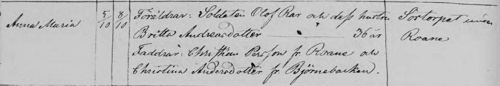 Föräldrar: Soldaten Olof Rar och dess hustru Sörtorpet under
Anna Maria 5/10 8/10 Britta Andersdotter 36 år Roane
Faddrar: Christian Persson fr. Roane och
Christina Andersdotter fr. Björnebacken.